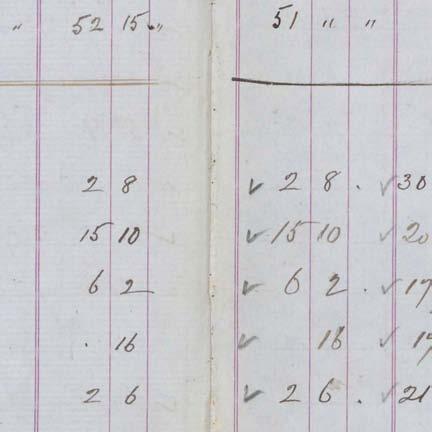 " 52 15 " 51 " "
2 8 ✓ 2 8 . ✓ 30
15 10 ✓ 15 10 ✓ 20
6 2 ✓ 6 2 . ✓ 17
. 16 ✓ 16 ✓
2 6 ✓ 2 6 . ✓ 21